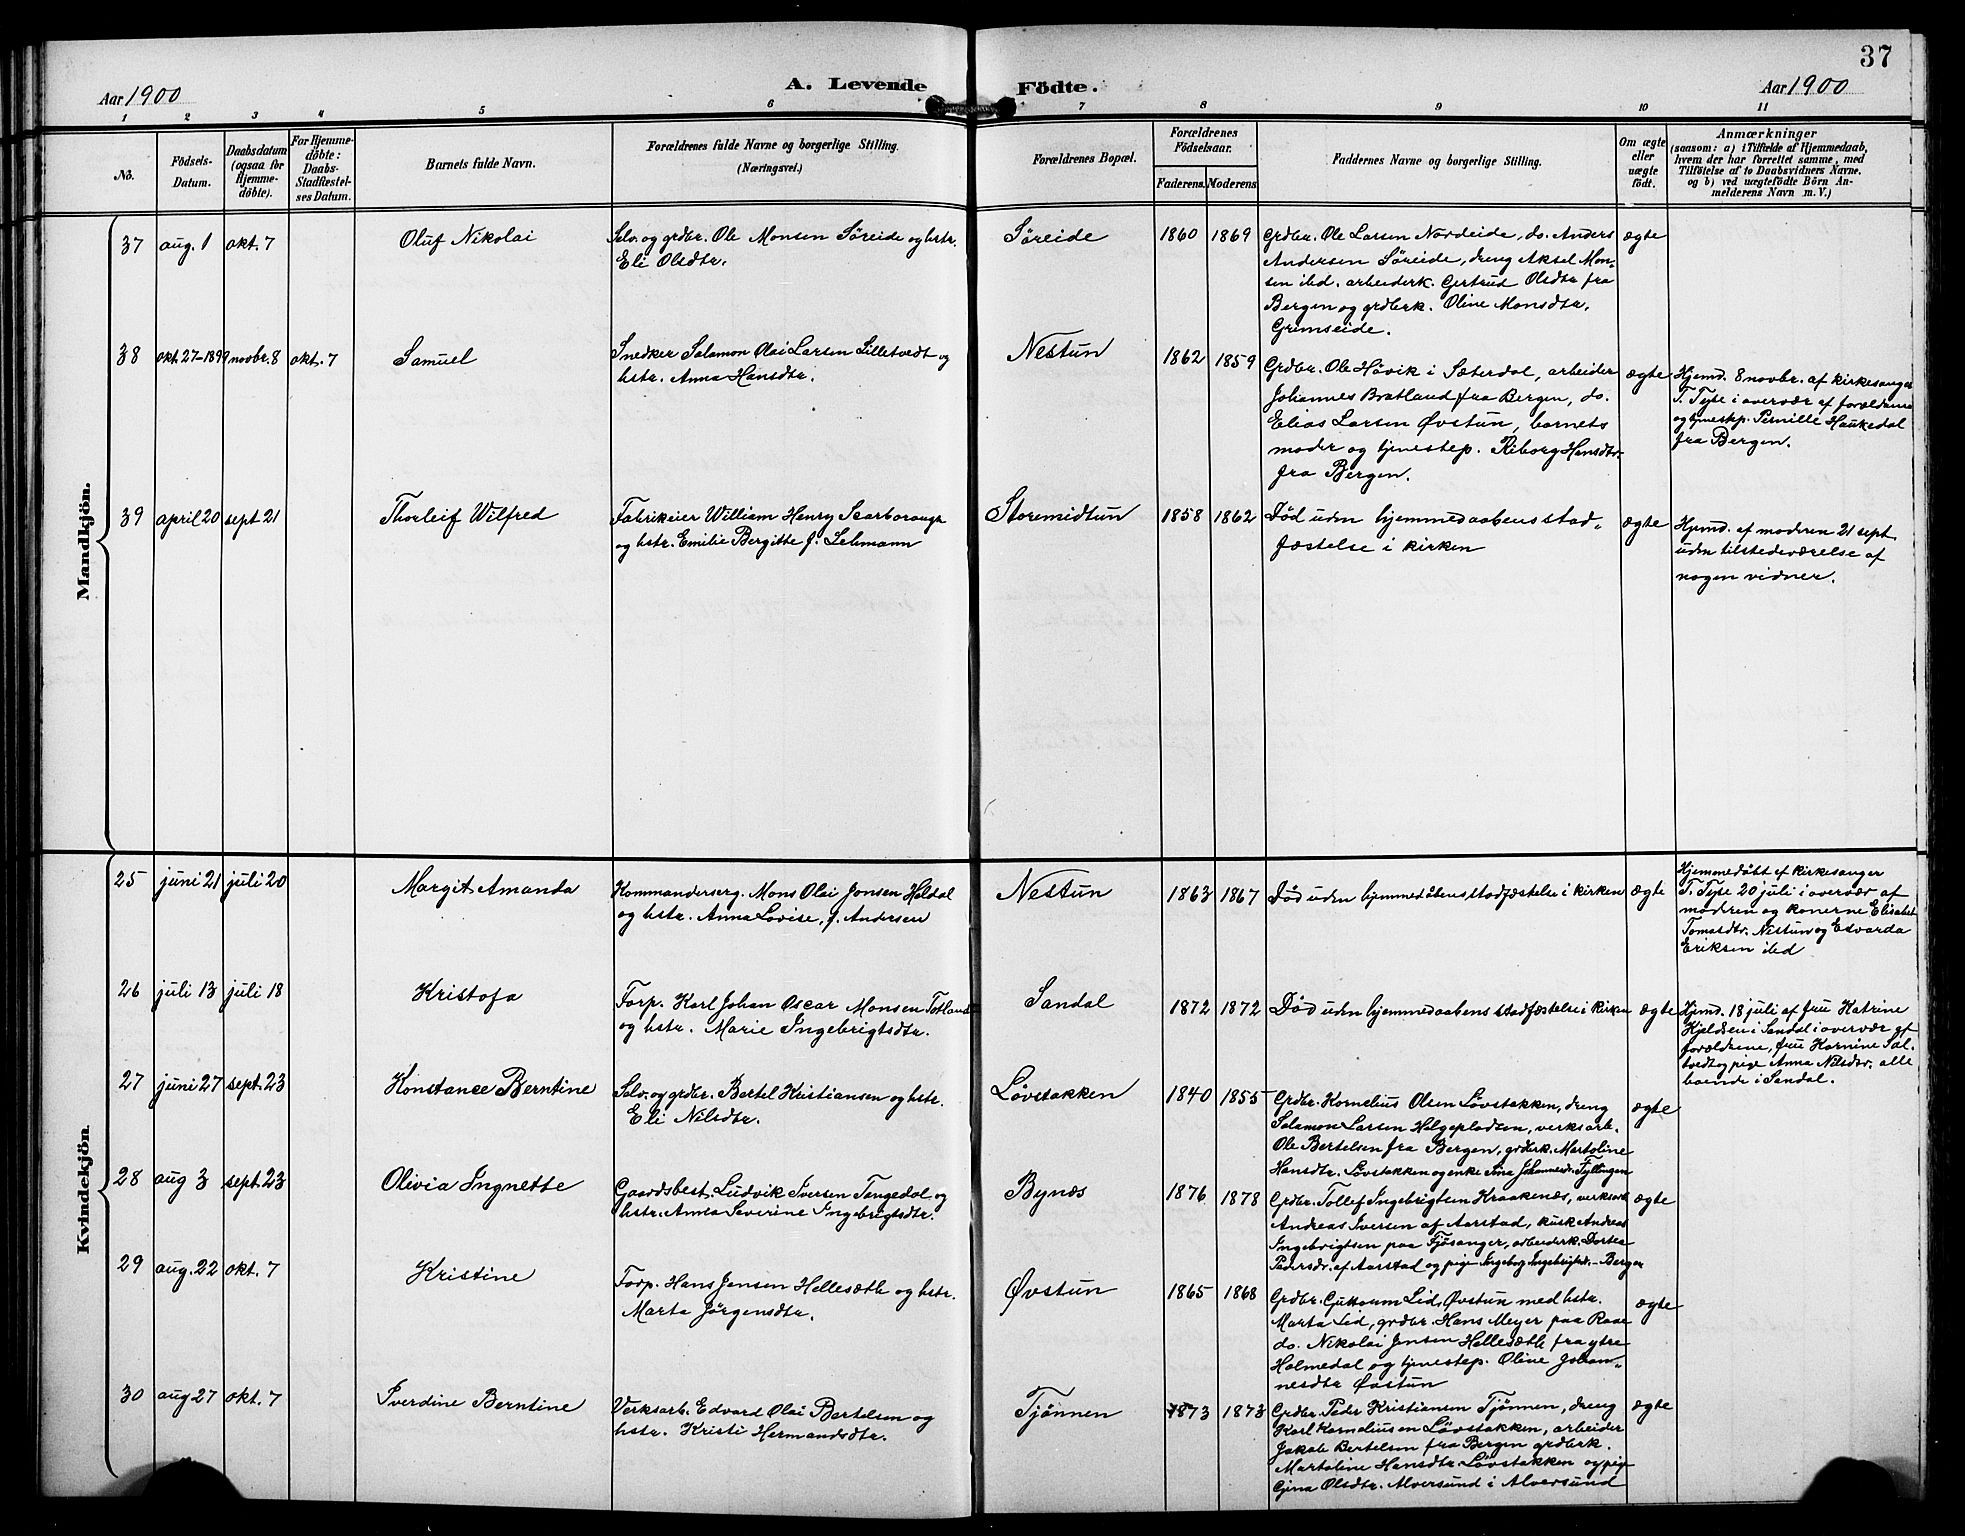 37
Aar 1900
A. Levende Födte.
Aar 1900
1 2 3 4 5 6 7 8 9 10 11
No.
Födsels-
Datum.
Daabsdatum
(ogsaa for
Hjemme-
döbte).
For Hjemme-
döbte:
Daabs-
Stadfæstel-
ses Datum.
Barnets fulde Navn.
Forældrenes fulde Navne og borgerlige Stilling.
(Næringsvei.)
Forældrenes Bopæl.
Forældrenes
Födselsaar.
Faderens. Moderens
Faddernes Navne og borgerlige Stilling.
Om ægte
eller
uægte
födt.
Anmærkninger
(saasom: a) i Tilfælde af Hjemmedaab,
hvem der har forrettet samme, med
Tilföielse af to Daabsvidners Navne.
og b) ved uægtefödte Börn An-
melderens Navn m. V.)
Mandkjön.
37 aug. 1 okt. 7
Oluf Nikolai
Selv. og grdbr. Ole Monsen Søreide og hstr.
Eli Olsdtr.
Søreide
1860 1869
Grdbr. Ole Larsen Nordeide, do. Anders
Andersen Søreide, dreng Aksel Mon-
sen ibd. arbeiderk. Gertrud Olsdtr fra
Bergen og grdbrk. Oline Monsdtr.
Grimseide.
ægte
38 okt. 27-1899 novbr. 8 okt. 7
Samuel
Snedker Salomon Olai Larsen Lilletvedt og
hstr. Anna Hansdtr.
Nestun
1862 1859
Grdbr. Ole Håvik i Sæterdal, arbeider
Johannes Bratland fra Bergen, do.
Elias Larsen Øvstun, barnets
moder og tjenestep. Kiborg Hansdtr.
fra Bergen.
ægte
Hjemd. 8 novbr. af kirkesanger
T. Tyse i overvær af forældrene
og tjenestep. Pernille Haukedal
fra Bergen.
39 april 20 sept 21
Thorleif Wilfred
Fabrikeier William Henry Scarborough
og hstr. Emilie Bergitte f. Lehmann
Storemidtun
1858 1862
Død uden hjemmedaabens stad-
fæstelse i kirken
ægte
Hjmd. af modren 21 sept.
uden tilstedeværelse af
nogen vidner.
Kvindekjön.
25 juni 21 juli 20
Margit Amanda
Kommanderserg. Mons Olai Jonsen Heldal
og hstr. Anna Lovise, f. Andersen
Nestun
1863 1867
Død uden hjemmedåbens stadfæstelse i kirken
ægte
Hjemmedøbt af kirkesanger
T. Tyse 20 juli i overvær af
modren og konerne Elisabet
Tomasdtr. Nestun og Edvarda
Eriksen ibd
26 juli 13 juli 18
Kristofa
Forp. Karl Johan Oscar Monsen Totland
og hstr. Marie Ingebrigtsdtr.
Sandal
1872 1872
Død uden hjemmedaabens stadfæstelse i kirken
ægte
Hjemd. 18 juli af fru Katrine
Kjeldsen i Sandal i overvær af
forældrene, fru Kornine Sæl-
tvedt og pige Anna Nilsdtr. alle
boende i Sandal.
27 juni 27 sept. 23
Konstance Berntine
Selv. og grdbr. Bertel Kristiansen og hstr.
Eli Nilsdtr.
Løvstakken
1840 1855
Grdbr. Kornelius Olsen Løvstakken, dreng
Salamon Larsen Helgepladsen, verksarb.
Ole Bertelsen fra Bergen, grdbrk. Martoline
Hansdtr. Løvstakken og enke Sina Johannesdr. Fyllingen
ægte
28 aug 3 sept. 23
Olivia Ingnette
Gaardsbest. Ludvik Iversen Tengedal og
hstr. Anna Severine Ingebrigtsdtr.
Bynæs
1876 1878
Grdbr. Tollef Ingebrigtsen Kraakenæs, verksarb
Andreas Iversen af Aarstad, kusk Andreas
Ingebrigtsen paa Fjøsanger, arbeiderk. Dortea
Pedersdr. af Aarstad og pige Ingeborg Ingebrigtsd. Bergen
ægte
29 aug. 22 okt. 7
Kristine
Forp. Hans Jensen Hellesæth og hstr.
Marta Jørgensdtr.
Øvstun
1865 1868
Grdbr. Guttorm Lid, Øvstun med hstr.
Marta Lid, grdbr. Hans Meyer paa Raae
do. Nikolai Jensen Hellesæth fra ytre
Holmedal og tjenestep. Oline Johan-
nesdtr Øvstun
ægte
30 aug 27 okt. 7
Sverdine Berntine
Verksarb. Edvard Olai Bertelsen og
hstr. Kristi Hermandsdtr.
Tjønnen
1873 1873
Grdbr. Peder Kristiansen Tjønnen, dreng
Karl Korneliussen Løvstakken, arbeider
Jakob Bertelsen fra Bergen grdbrk.
Martoline Hansdtr Løvstakken og pige
Gjina Olsdtr. Alversund i Alversund
ægte